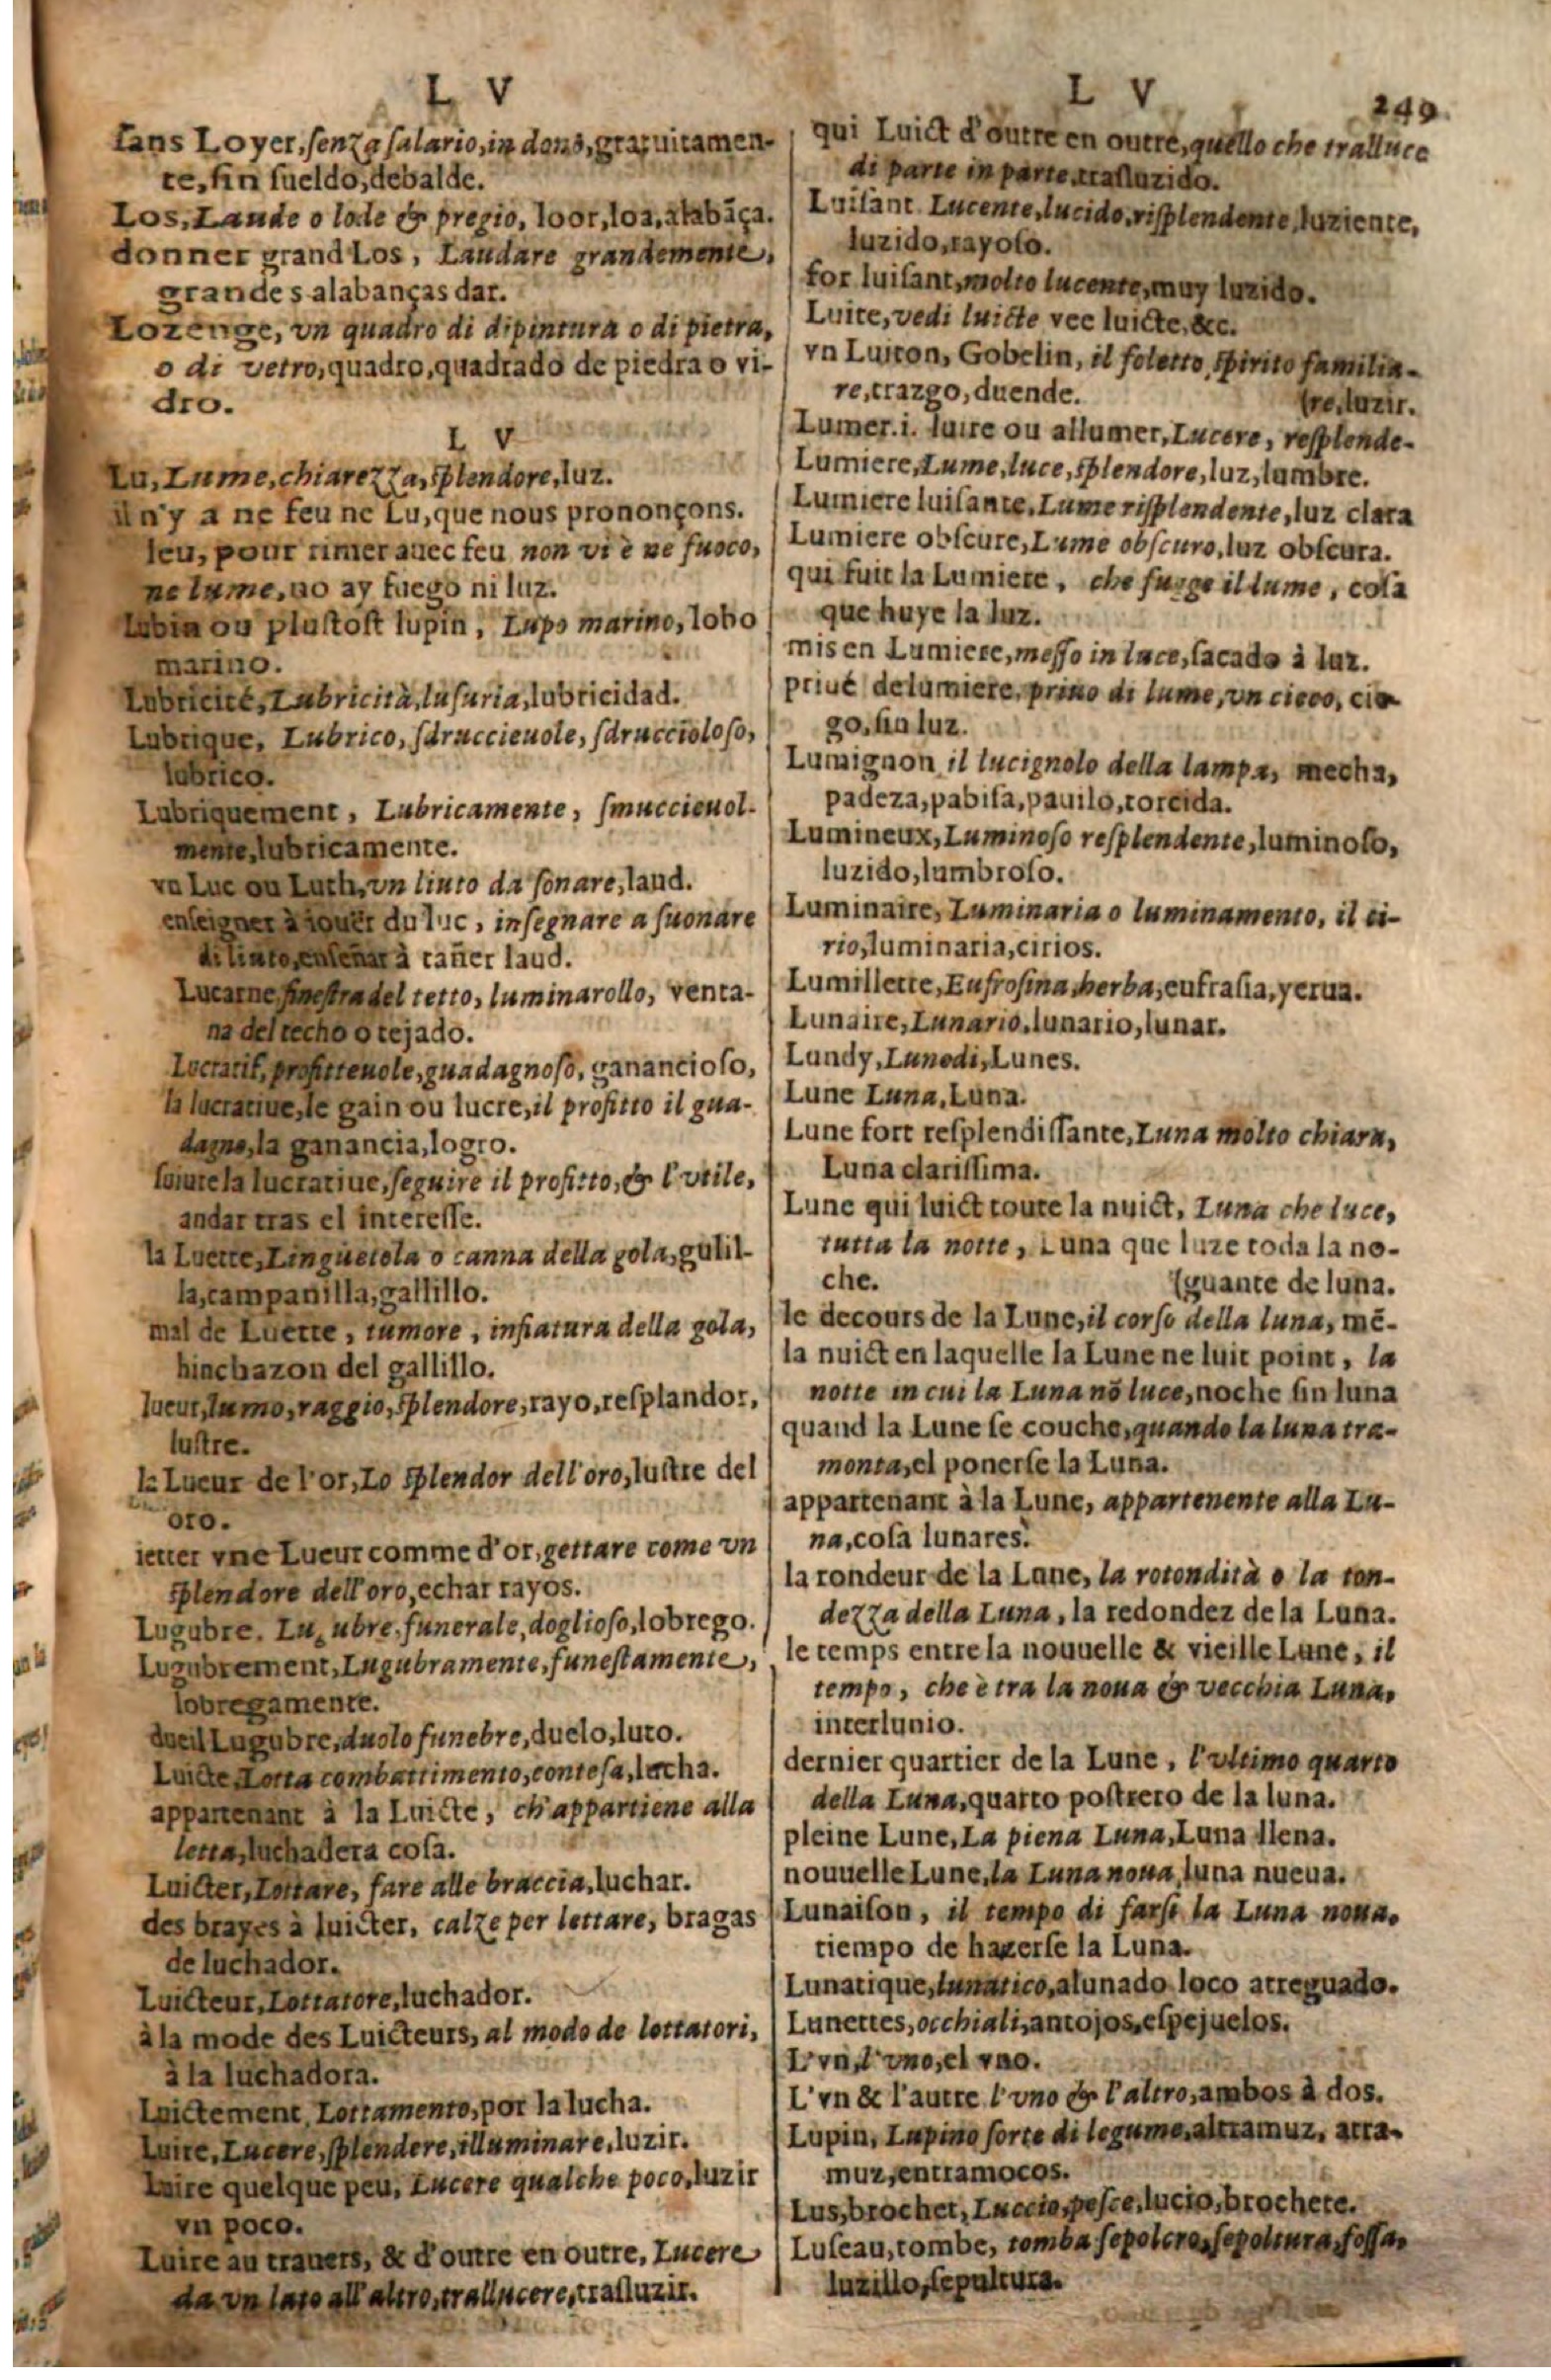 L V
ſans Loyer, ſenza ſalario, in dono, gratuitamen-
te, ſin ſueldo, debalde.
Los, Laude o lode & pregio, loor, loa, alabãça.
donner grand Los, Laudare grandemente,
grandes alabanças dar.
Lozenge, vn quadro di dipintura o di pietra,
o di vetro, quadro, quadrado de piedra o vi-
dro.
L V
Lu, Lume, chiarezza, ſplendore, luz.
il n'y a ne feu ne Lu, que nous prononçons.
leu, pour rimer auec feu non vi è ne fuoco,
ne lume, no ay fuego ni luz.
Lubin ou pluſtoſt lupin, Lupo marino, lobo
marino.
Lubricité, Lubricità, luſuria, lubricidad.
Lubrique, Lubrico, ſdruccieuole, ſdruccioloſo,
lubrico.
Lubriquement, Lubricamente, ſmuccieuol-
mente, lubricamente.
vn Luc ou Luth, vn liuto da ſonare, laud.
enſeigner à iouër du luc, inſegnare a ſuonare
di liuto, enſeñar à tañer laud.
Lucarne fineſtra del tetto, luminarollo, venta-
na del techo o tejado.
Lucratif, profitteuole, guadagnoſo, ganancioſo,
la lucratiue, le gain ou lucre, il profitto il gua-
dagno, la ganancia, logro.
ſuiure la lucratiue, ſeguire il profitto, & l'vtile,
andar tras el intereſſe.
la Luette, Linguetola o canna della gola, gulil-
la, campanilla, gallillo.
mal de Luette, tumore, infiatura della gola,
hinchazon del gallillo.
lueur, lumo, raggio, ſplendore, rayo, reſplandor,
luſtre.
la Lueur de l'or, Lo ſplendor dell'oro, luſtre del
oro.
ietter vne Lueur comme d'or, gettare come vn
ſplendore dell'oro, echar rayos.
Lugubre. Lugubre, funerale, doglioſo, lobrego.
Lugubrement, Lugubramente, funeſtamente,
lobregamente.
dueil Lugubre, duolo funebre, duelo, luto.
Luicte, Lotta combattimento, conteſa, lucha.
appartenant à la Luicte, ch'appartiene alla
lotta, luchadera coſa.
Luicter, Lottare, fare alle braccia, luchar.
des brayes à luicter, calze per lottare, bragas
de luchador.
Luicteur, Lottatore, luchador.
à la mode des Luicteurs, al modo de lottatori,
à la luchadora.
Luictement, Lottamento, por la lucha.
Luire, Lucere, ſplendere, illuminare, luzir.
Luire quelque peu, Lucere qualche poco, luzir
vn poco.
Luire au trauers, & d'outre en outre, Lucere
da vn lato all'altro, trallucere, traſluzir.
L V
249
qui Luict d'outre en outre, quello che tralluce
di parte in parte, traſluzido.
Luiſant Lucente, lucido, riſplendente, luziente,
luzido, rayoſo.
for luiſant, molto lucente, muy luzido.
Luite, vedi luicte vee luicte, &c.
vn Luiton, Gobelin, il foletto, ſpirito familia-
re, trazgo, duende. (re, luzir.
Lumer. i. luire ou allumer, Lucere, reſplende-
Lumiere, Lume, luce, ſplendore, luz, lumbre.
Lumiere luiſante, Lume riſplendente, luz clara
Lumiere obſcure, Lume obſcuro, luz obſcura.
qui fuit la Lumiere, che fugge il lume, coſa
que huye la luz.
mis en Lumiere, meſſo in luce, ſacado à luz.
priué de lumiere, priuo di lume, vn cieco, cie-
go, ſin luz.
Lumignon il lucignolo della lampa, mecha,
padeza, pabiſa, pauilo, torcida.
Lumineux, Luminoſo reſplendente, luminoſo,
luzido, lumbroſo.
Luminaire, Luminaria o luminamento, il ci-
rio, luminaria, cirios.
Lumillette, Eufroſina, herba, eufraſia, yerua.
Lunaire, Lunario, lunario, lunar.
Lundy, Lunedi, Lunes.
Lune Luna, Luna.
Lune fort reſplendiſſante, Luna molto chiara,
Luna clariſſima.
Lune qui luict toute la nuict, Luna che luce,
tutta la notte, Luna que luze toda la no-
che. (guante de luna.
le decours de la Lune, il corſo della luna, mē-
la nuict en laquelle la Lune ne luit point, la
notte in cui la Luna nõ luce, noche ſin luna
quand la Lune ſe couche, quando la luna tra-
monta, el ponerſe la Luna.
appartenant à la Lune, appartenente alla Lu-
na, coſa lunares.
la rondeur de la Lune, la rotondità o la ton-
dezza della Luna, la redondez de la Luna.
le temps entre la nouuelle & vieille Lune, il
tempo, che è tra la noua & vecchia Luna,
interlunio.
dernier quartier de la Lune, l'vltimo quarto
della Luna, quarto poſtrero de la luna.
pleine Lune, La piena Luna, Luna llena.
nouuelle Lune, la Luna noua, luna nueua.
Lunaiſon, il tempo di farſi la Luna noua,
tiempo de hazerſe la Luna.
Lunatique, lunatico, alunado loco atreguado.
Lunettes, occhiali, antojos, eſpejuelos.
L'vn, l'vno, el vno.
L'vn & l'autre l'vno & l'altro, ambos à dos.
Lupin, Lupino ſorte di legume, altramuz, atra-
muz, entramocos.
Lus, brochet, Luccio, peſce, lucio, brochete.
Luſeau, tombe, tomba ſepolcro, ſepoltura, foſſa,
luzillo, ſepultura.